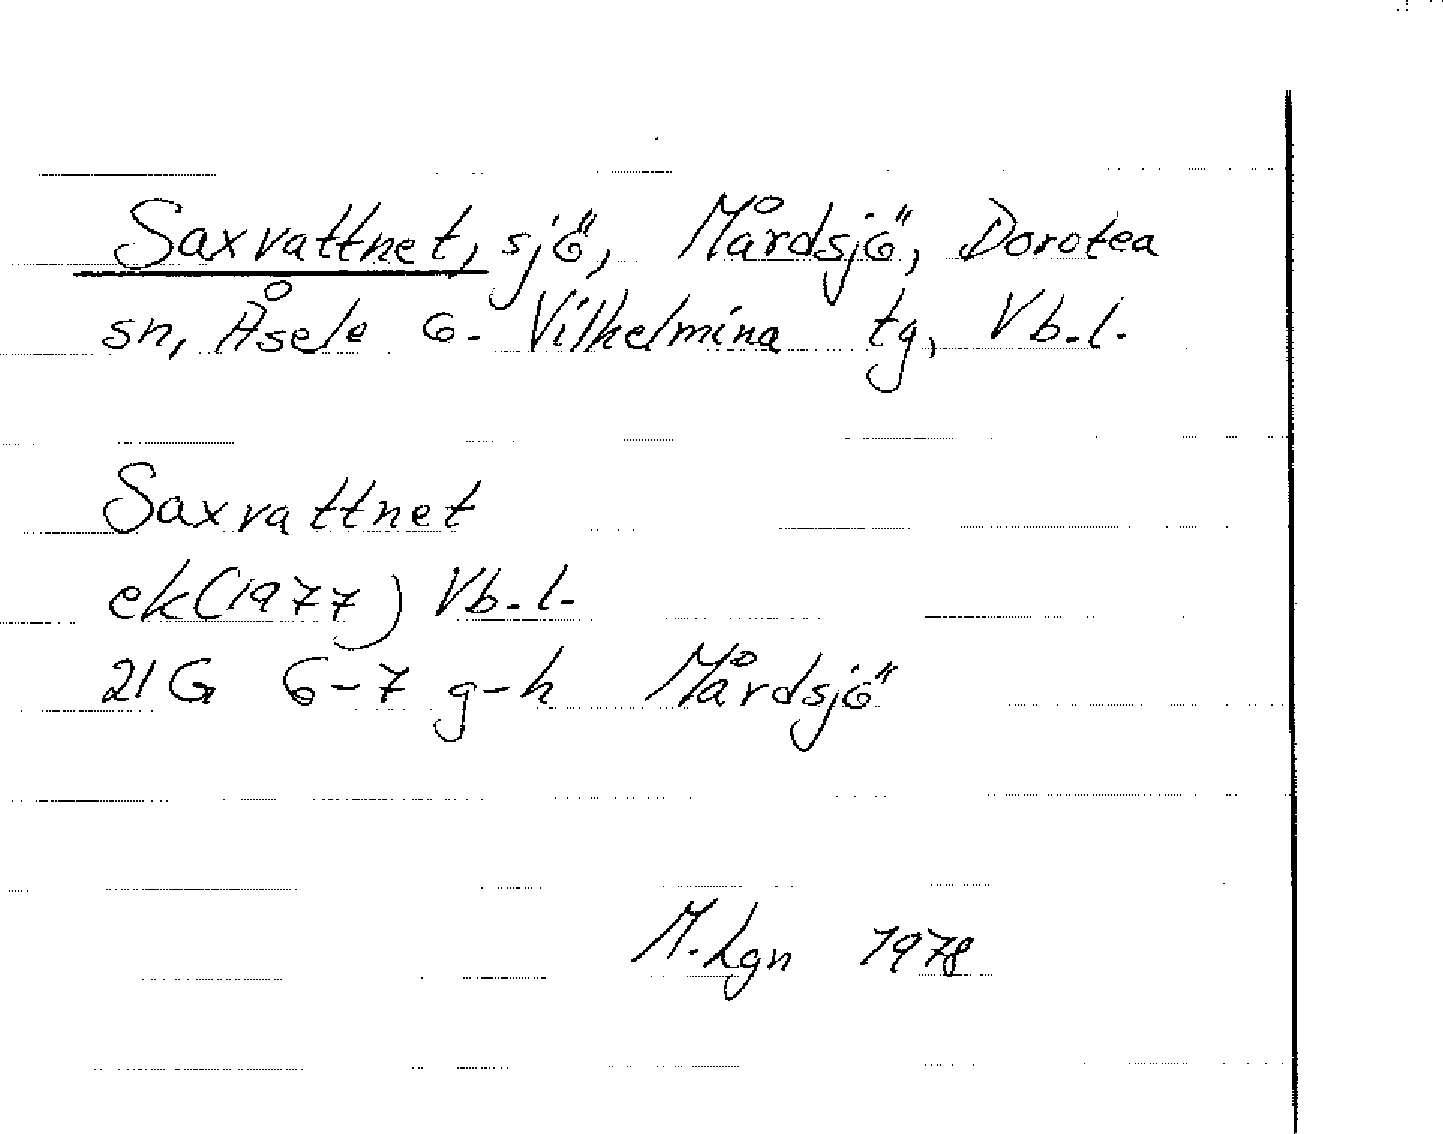 Saxvattnet, sjö, Mårdsjö, Dorotea
sn, Åsele o. Vilhelmina tg, Vb.l.
Saxvattnet
ek(1977) Vb.l.
21G 6-7 g-h Mårdsjö
M.Lgn 1978